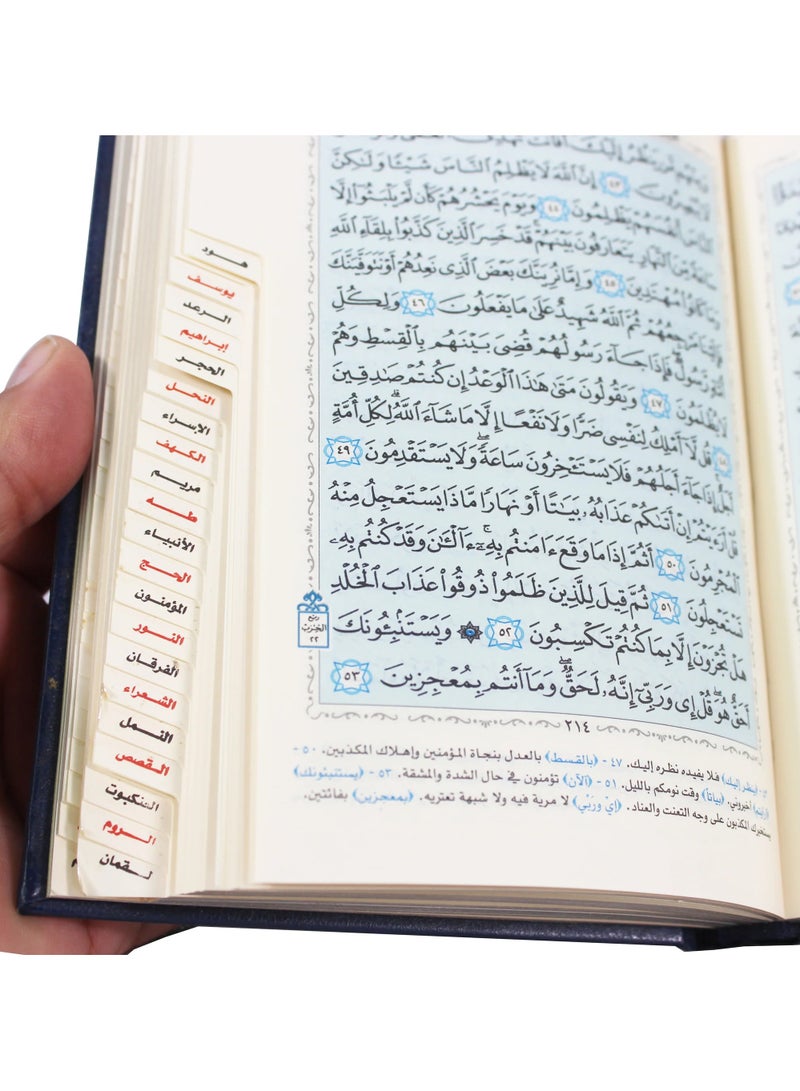 لَا يُبْصِرُونَ ٤٣ إِنَّ ٱللَّهَ لَا يَظْلِمُ ٱلنَّاسَ شَيْـًٔا وَلَـٰكِنَّ
ٱلنَّاسَ أَنفُسَهُمْ يَظْلِمُونَ ٤٤ وَيَوْمَ يَحْشُرُهُمْ كَأَن لَّمْ يَلْبَثُوٓا۟ إِلَّا
سَاعَةً مِّنَ ٱلنَّهَارِ يَتَعَارَفُونَ بَيْنَهُمْ ۚ قَدْ خَسِرَ ٱلَّذِينَ كَذَّبُوا۟ بِلِقَآءِ ٱللَّهِ
وَمَا كَانُوا۟ مُهْتَدِينَ ٤٥ وَإِمَّا نُرِيَنَّكَ بَعْضَ ٱلَّذِى نَعِدُهُمْ أَوْ نَتَوَفَّيَنَّكَ
فَإِلَيْنَا مَرْجِعُهُمْ ثُمَّ ٱللَّهُ شَهِيدٌ عَلَىٰ مَا يَفْعَلُونَ ٤٦ وَلِكُلِّ
أُمَّةٍ رَّسُولٌ ۖ فَإِذَا جَآءَ رَسُولُهُمْ قُضِىَ بَيْنَهُم بِٱلْقِسْطِ وَهُمْ
لَا يُظْلَمُونَ ٤٧ وَيَقُولُونَ مَتَىٰ هَـٰذَا ٱلْوَعْدُ إِن كُنتُمْ صَـٰدِقِينَ
٤٨ قُل لَّآ أَمْلِكُ لِنَفْسِى ضَرًّا وَلَا نَفْعًا إِلَّا مَا شَآءَ ٱللَّهُ ۗ لِكُلِّ أُمَّةٍ
أَجَلٌ ۚ إِذَا جَآءَ أَجَلُهُمْ فَلَا يَسْتَـْٔخِرُونَ سَاعَةً ۖ وَلَا يَسْتَقْدِمُونَ ٤٩
قُلْ أَرَءَيْتُمْ إِنْ أَتَىٰكُمْ عَذَابُهُۥ بَيَـٰتًا أَوْ نَهَارًا مَّاذَا يَسْتَعْجِلُ مِنْهُ
ٱلْمُجْرِمُونَ ٥٠ أَثُمَّ إِذَا مَا وَقَعَ ءَامَنتُم بِهِۦٓ ۚ ءَآلْـَٔـٰنَ وَقَدْ كُنتُم بِهِۦ
تَسْتَعْجِلُونَ ٥١ ثُمَّ قِيلَ لِلَّذِينَ ظَلَمُوا۟ ذُوقُوا۟ عَذَابَ ٱلْخُلْدِ
هَلْ تُجْزَوْنَ إِلَّا بِمَا كُنتُمْ تَكْسِبُونَ ٥٢ ۞ وَيَسْتَنۢبِـُٔونَكَ
أَحَقٌّ هُوَ ۖ قُلْ إِى وَرَبِّىٓ إِنَّهُۥ لَحَقٌّ ۖ وَمَآ أَنتُم بِمُعْجِزِينَ ٥٣
ربع
الحزب
٢٢
٢١٤
(ينظر إليك) فلا يفيده نظره إليك. ٤٧ - (بالقسط) بالعدل بنجاة المؤمنين وإهلاك المكذبين. ٥٠ -
(أرأيتم) أخبروني. (بياتاً) وقت نومكم بالليل. ٥١ - (آلآن) تؤمنون في حال الشدة والمشقة. ٥٣ - (يستنبئونك)
يستخبرك المكذبون على وجه التعنت والعناد. (إي وربي) لا مرية فيه ولا شبهة تعتريه. (بمعجزين) بفائتين.
هود
يوسف
الرعد
إبراهيم
الحجر
النحل
الإسراء
الكهف
مريم
طه
الأنبياء
الحج
المؤمنون
النور
الفرقان
الشعراء
النمل
القصص
العنكبوت
الروم
لقمان